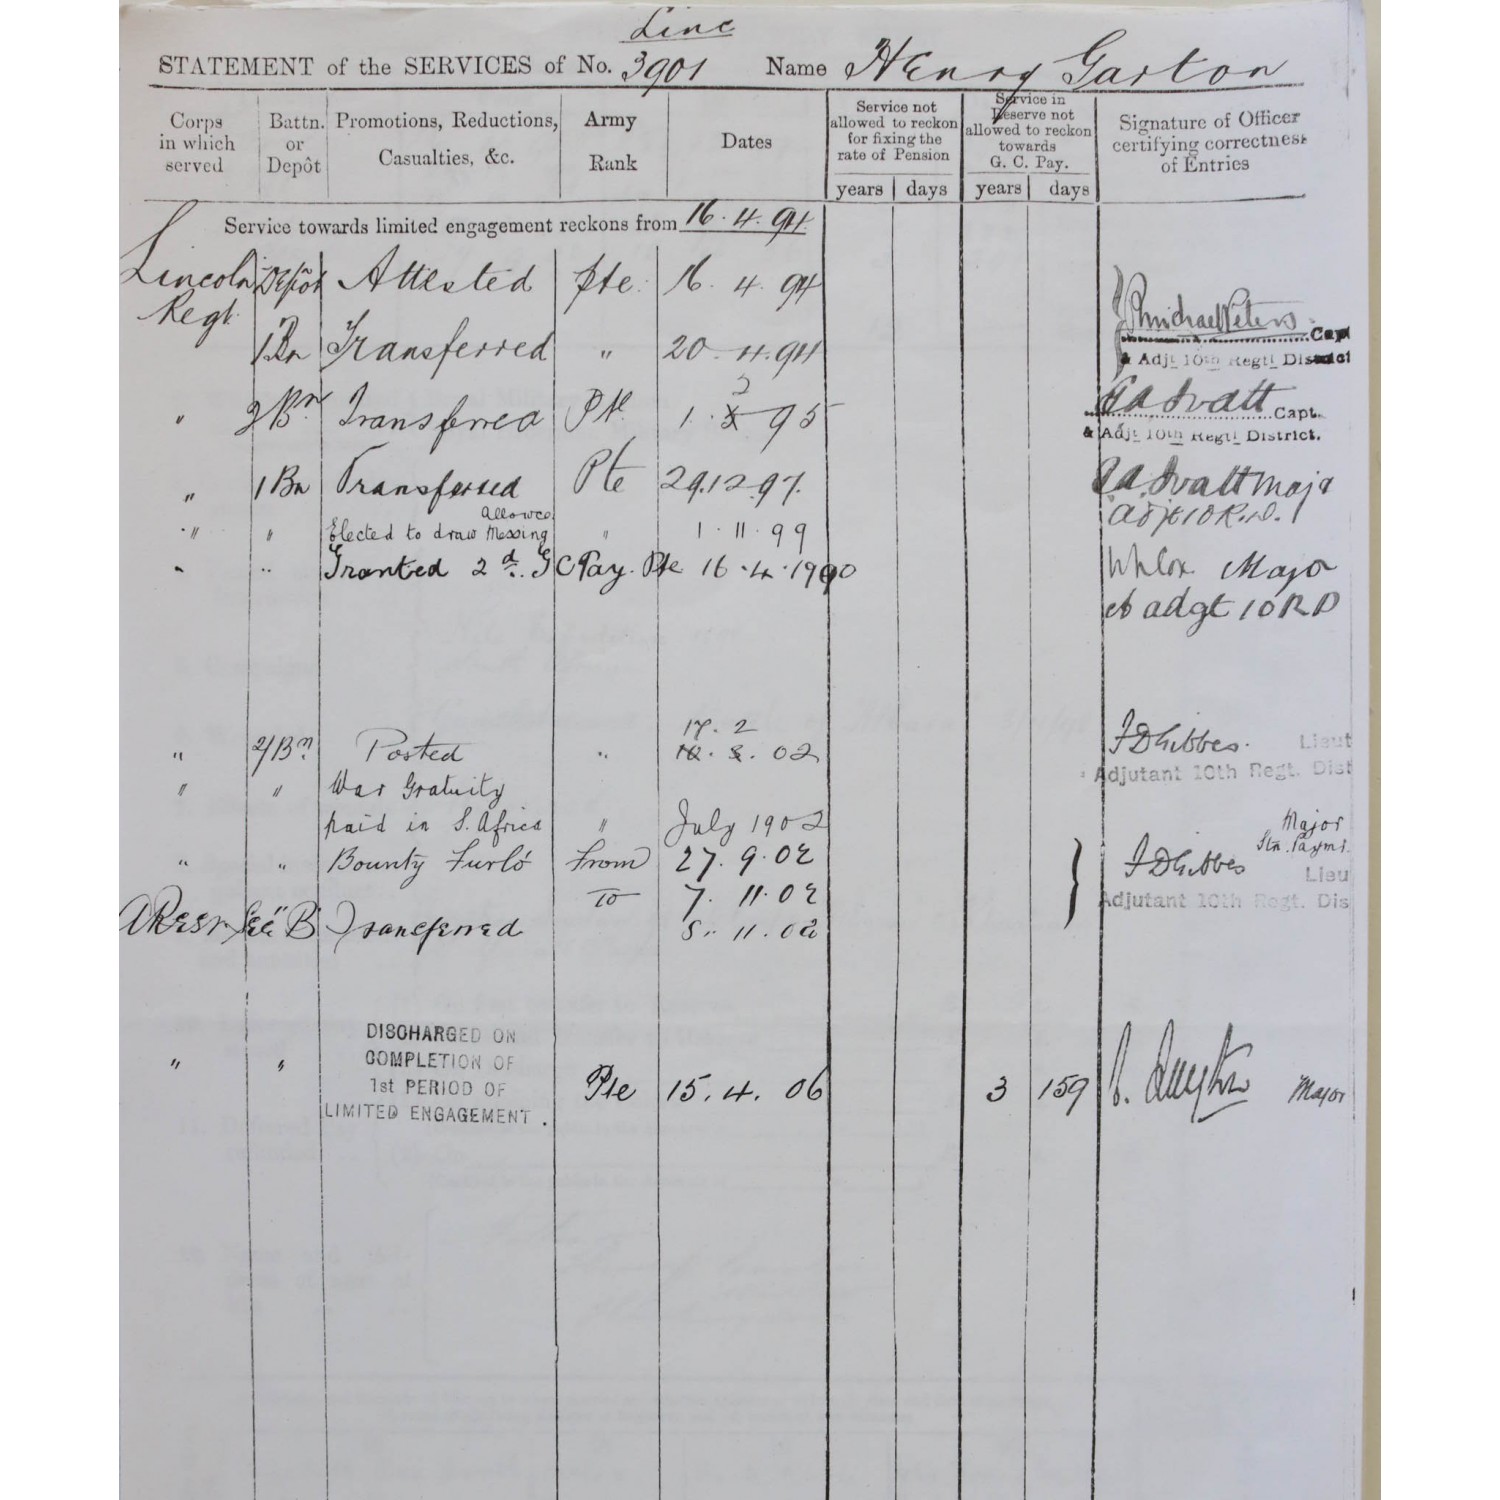 Linc
STATEMENT of the SERVICES of No. 3901 Name Henry Garton
Corps in which served
Battn. or Depôt
Promotions, Reductions, Casualties, &c.
Army Rank
Dates
Service not allowed to reckon for fixing the rate of Pension
years days
Service in Reserve not allowed to reckon towards G. C. Pay.
years days
Signature of Officer certifying correctness of Entries
Service towards limited engagement reckons from 16.4.94
Lincoln Regt. Depôt Attested Pte. 16. 4. 94
1 Bn Transferred " 20. 4. 94
Peters Capt
& Adjt 10th Regtl District
" 2 Bn Transferred Pte 1. 2 95
Capt.
& Adjt 10th Regtl District.
" 1 Bn Transferred Pte 29.12.97.
Majr
Adjt 10 R.D.
" " Elected to draw Messing Allowce " 1. 11. 99
" " Granted 2d. G C Pay. Pte 16.4.1900
Major
adgt 10 R D
17. 2
" 2/Bn Posted " 02
F D Gibbes. Lieut
Adjutant 10th Regt. Dist
" " War Gratuity
paid in S. Africa " July 1902
Major
Stn. Paymr.
" " Bounty Furlo' From 27. 9. 02
To 7. 11. 02
F D Gibbes Lieu
Adjutant 10th Regt. Dis
A Reser Sec "B" Transferred 8. 11. 02
" " DISCHARGED ON
COMPLETION OF
1st PERIOD OF
LIMITED ENGAGEMENT.
Pte 15. 4. 06 3 159 Major